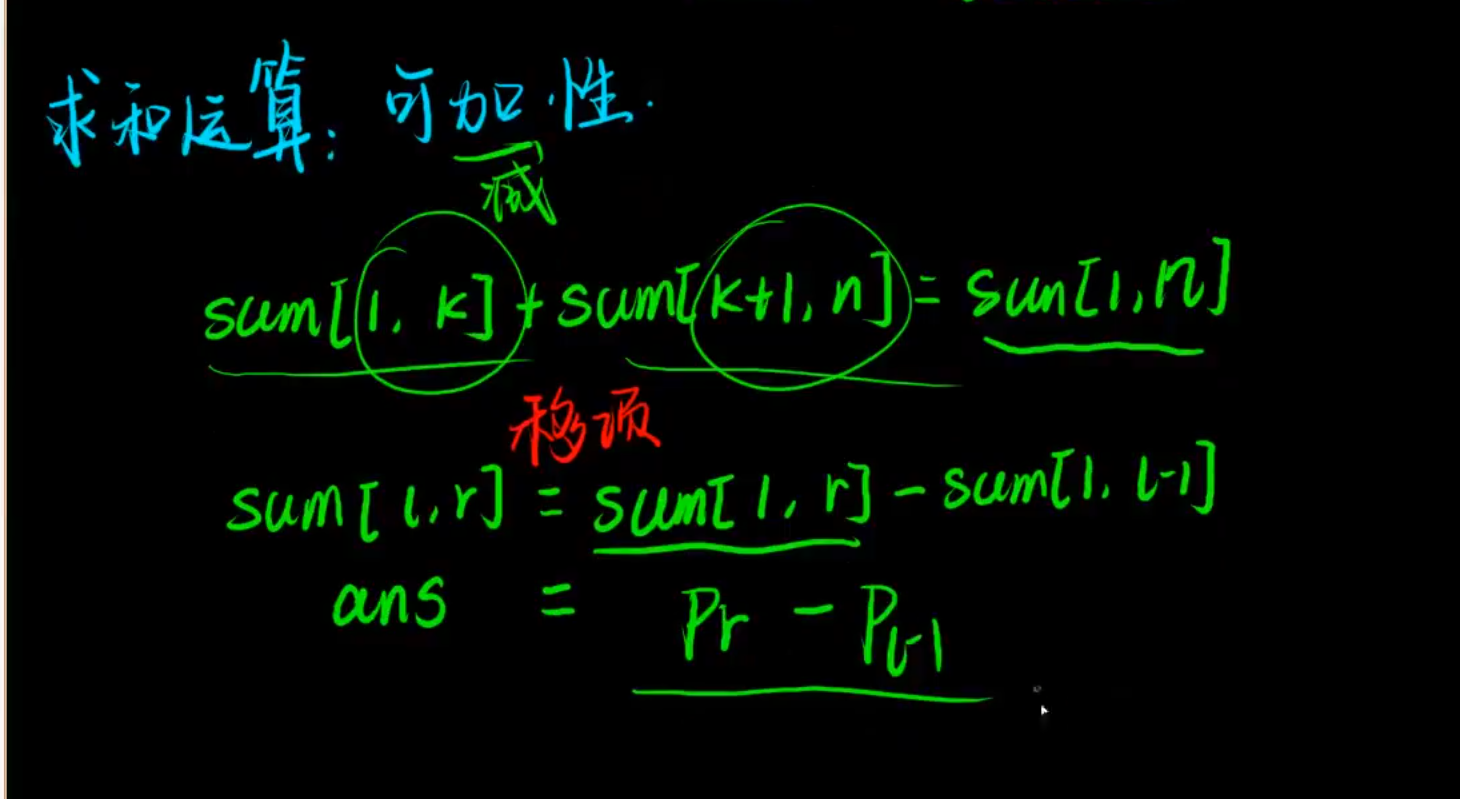 求和运算: 可加性.
减
sum[1, k] + sum[k+1, n] = sun[1, n]
移项
sum[l, r] = sum[1, r] - sum[1, l-1]
ans = Pr - Pl-1